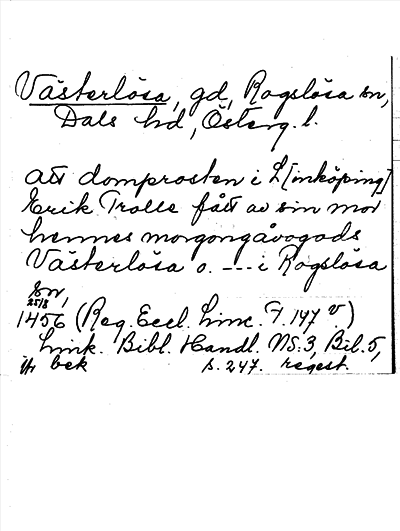 Västerlösa, gd, Rogslösa sn,
Dals hd, Österg. l.
att domprosten i L[inköping]
Erik Trolle fått av sin mor
hennes morgongåvogods
Västerlösa o. --- i Rogslösa
sn,
25/8
1456 (Reg. Eccl. Linc. F. 147 v.)
Link. Bibl. Handl. NS:3, Bil. 5,
bek s. 247. regest.